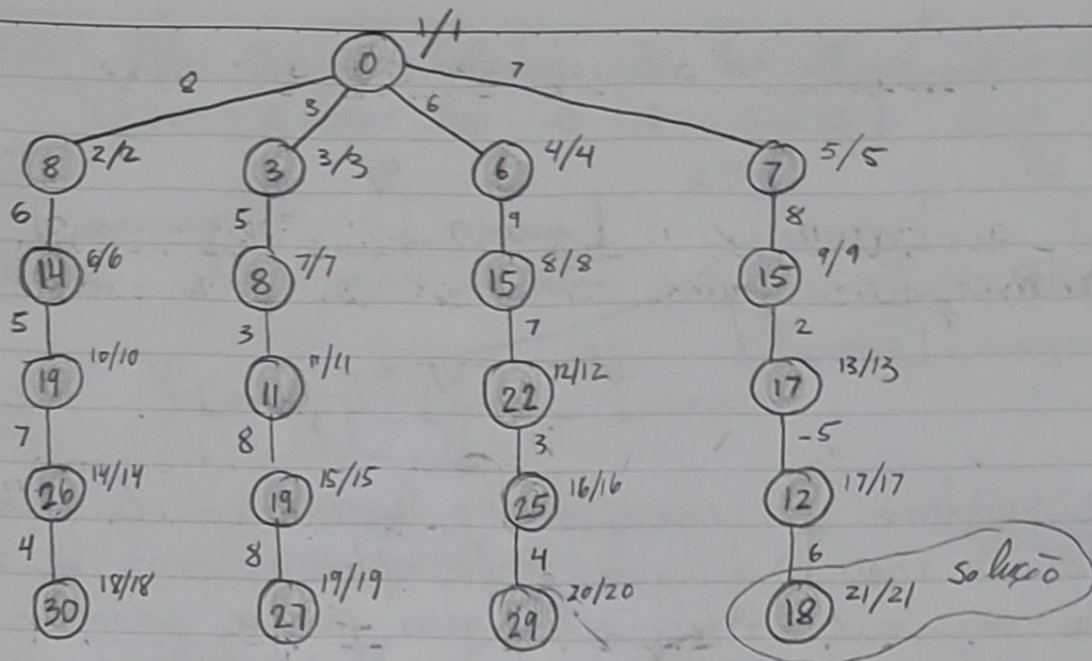 1/1
0
8 3 6 7
8 2/2 3 3/3 6 4/4 7 5/5
6 5 9 8
14 6/6 8 7/7 15 8/8 15 9/9
5 3 7 2
19 10/10 11 11/11 22 12/12 17 13/13
7 8 3 -5
26 14/14 19 15/15 25 16/16 12 17/17
4 8 4 6
30 18/18 27 19/19 29 20/20 18 21/21 solução